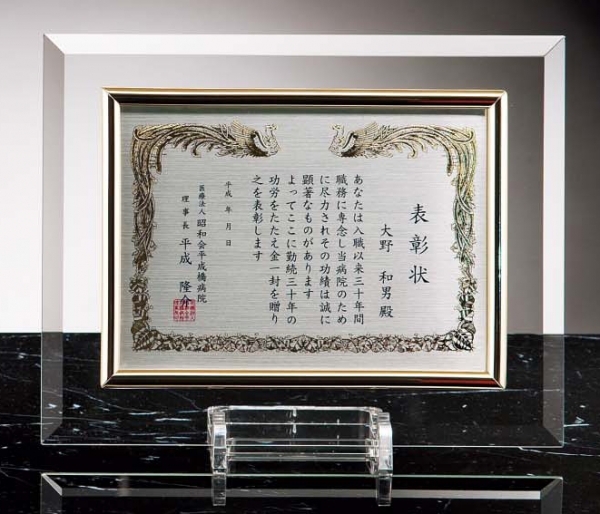 表彰状
大野 和男 殿
あなたは入職以来三十年間
職務に専念し当病院のため
に尽力されその功績は誠に
顕著なものがあります
よってここに勤続三十年の
功労をたたえ金一封を贈り
之を表彰します
平成 年 月 日
医療法人 昭和会平成橋病院
理事長 平成 隆介